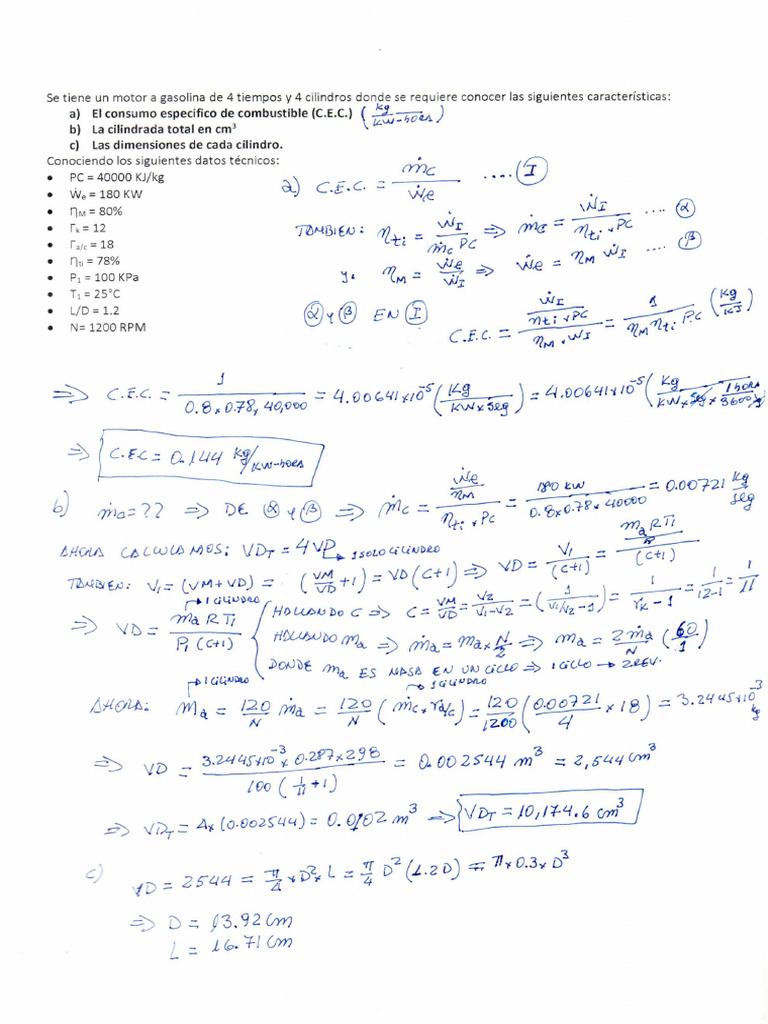 Se tiene un motor a gasolina de 4 tiempos y 4 cilindros donde se requiere conocer las siguientes características:
a) El consumo especifico de combustible (C.E.C.) (kg/KW-hora)
b) La cilindrada total en cm³
c) Las dimensiones de cada cilindro.
Conociendo los siguientes datos técnicos:
• PC = 40000 KJ/kg
• Ẇe = 180 KW
• ηM = 80%
• Γk = 12
• Γa/c = 18
• ηTI = 78%
• P1 = 100 KPa
• T1 = 25°C
• L/D = 1.2
• N= 1200 RPM
a) C.E.C. = ṁc/Ẇe .... (I)
TAMBIEN: ηti = ẆI/(ṁc PC) ⇒ ṁc = ẆI/(ηti × PC) .... (α)
y: ηM = Ẇe/ẆI ⇒ Ẇe = ηM ẆI .... (β)
(α) y (β) EN (I)
C.E.C. = (ẆI/(ηti × PC))/(ηM × WI) = 1/(ηM ηti PC) (Kg/KJ)
⇒ C.E.C. = 1/(0.8 × 0.78 × 40,000) = 4.00641×10⁻⁵ (Kg/(KW × seg)) = 4.00641×10⁻⁵ (Kg/(KW × seg × 1 hora/3600 seg))
⇒ C.E.C = 0.144 Kg/KW-hora
b) ṁa = ?? ⇒ DE (α) y (β) ⇒ ṁc = (Ẇe/ηM)/(ηti × PC) = 180 KW/(0.8 × 0.78 × 40000) = 0.00721 Kg/seg
AHORA CALCULAMOS: VDT = 4VD → 1 SOLO CILINDRO
TAMBIEN: V1 = (VM + VD) = (VM/VD + 1) = VD (C+1) ⇒ VD = V1/(C+1) = (ma R T1/P1)/(C+1)
→ 1 CILINDRO
⇒ VD = ma R T1/(P1 (C+1))
HALLANDO C ⇒ C = VM/VD = V2/(V1-V2) = (1/(V1/V2 - 1)) = 1/(rk - 1) = 1/(12-1) = 1/11
HALLANDO ma ⇒ ṁa = ma × N/2 ⇒ ma = 2ṁa/N (60/1)
DONDE ma ES MASA EN UN CICLO ⇒ 1 CICLO → 2 REV.
→ 1 CILINDRO → 1 CILINDRO
AHORA: ma = 120/N ṁa = 120/N (ṁc × ra/c) = 120/1200 (0.00721/4 × 18) = 3.2445×10⁻³ kg
⇒ VD = 3.2445×10⁻³ × 0.287 × 298/(100 (1/11 + 1)) = 0.002544 m³ = 2,544 cm³
⇒ VDT = 4 × (0.002544) = 0.0102 m³ ⇒ VDT = 10,174.6 cm³
c) VD = 2544 = π/4 × D² × L = π/4 D² (1.2D) = π × 0.3 × D³
⇒ D = 13.92 cm
L = 16.71 cm